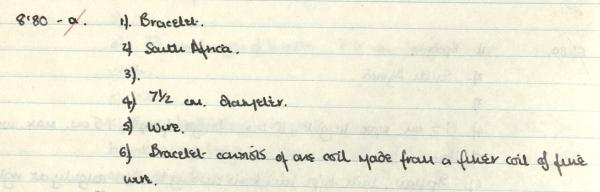 8:80 - a. 1). Bracelet.
2) South Africa.
3).
4) 7½ cm. diameter.
5) wire.
6) Bracelet consists of one coil made from a finer coil of fine
wire.